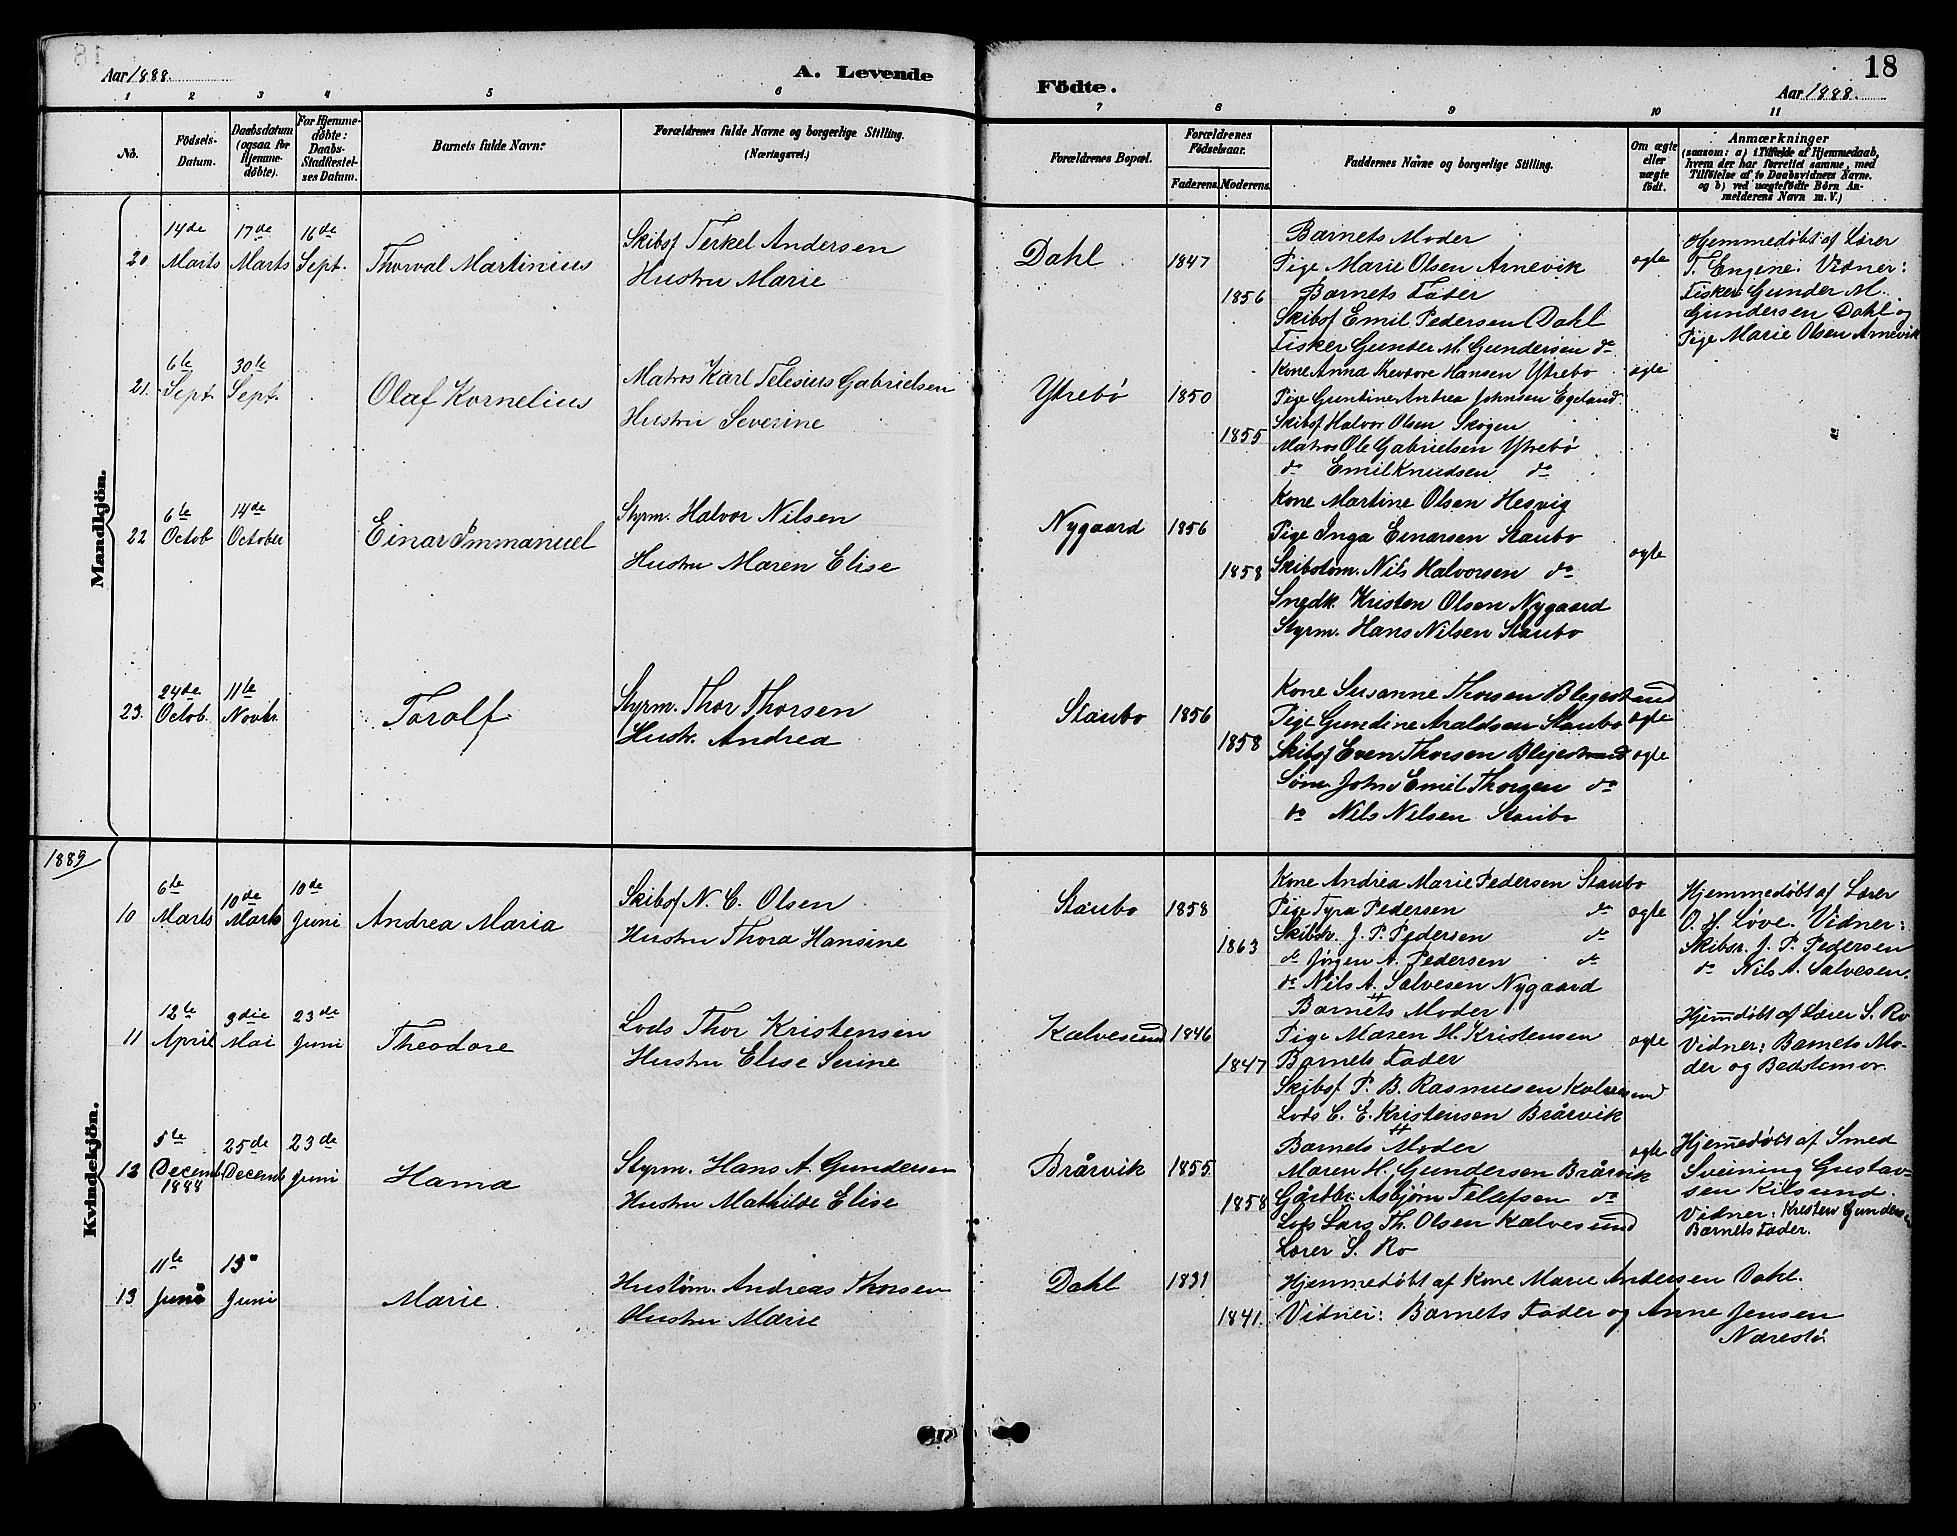 Aar 1888.
A. Levende
Födte.
18
Aar 1888.
1 2 3 4 5 6 7 8 9 10 11
No.
Födsels-Datum.
Daabsdatum (ogsaa for Hjemmedöbte).
For Hjemmedöbte: Daabs-Stadfæstelses Datum.
Barnets fulde Navn.
Forældrenes fulde Navne og borgerlige Stilling. (Næringsvei.)
Forældrenes Bopæl.
Forældrenes Födselsaar.
Faderens. Moderens.
Faddernes Navne og borgerlige Stilling.
Om ægte eller uægte födt.
Anmærkninger
(saasom: a) i Tilfælde af Hjemmedaab, hvem der har forrettet samme, med Tilföielse af to Daabsvidners Navne. og b) ved uægtefödte Börn Anmelderens Navn m. V.)
Mandkjön.
20. 14de Marts 17de Marts 16de Sept. Thorval Martinius
Skibsf Terkel Andersen
Hustru Marie
Dahl 1847 1856
Barnets Moder
Pige Marie Olsen Arnevik
Barnets Fader
Skibsf Emil Pedersen Dahl
Fisker Gunder M. Gundersen do
ægte
Hjemmedøbt af Lærer
T. Engene. Vidner:
Fisker Gunder M.
Gundersen Dahl og
Pige Marie Olsen Arnevik
21. 6te Sept. 30te Sept. Olaf Kornelius
Matros Karl Telesius Gabrielsen
Hustru Severine
Ytrebø 1850 1855
Kone Anna Theodore Hansen Ytrebø
Pige Gundine Andrea Johnsen Egeland
Skibsf Halvor Olsen Skogen
Matros Ole Gabrielsen Ytrebø
do Emil Knudsen do
ægte
22 6te Octob. 14de October Einar Immanuel
Styrm. Halvor Nilsen
Hustru Maren Elise
Nygaard 1856 1858
Kone Martine Olsen Hesvig
Pige Inga Einarsen Staubo
Skibstøm. Nils Halvorsen do
Snedk. Kristen Olsen Nygaard
Styrm. Hans Nilsen Staubo
ægte
23. 24de Octob. 11te Novbr. Toralf
Styrm. Thor Thorsen
Hustr. Andrea
Staubo 1856 1858
Kone Susanne Thorsen Blegestrand
Pige Gundine Araldsen Staubo
Skibsf Even Thorsen Blegestrand
Sømd. John Emil Thorsen do
do Nils Nilsen Staubo
ægte
ægte
1889
Kvindekjön.
10 6te Marts 10de Marts 10de Juni Andrea Maria
Skibsf N. C. Olsen
Hustru Thora Hansine
Staubo 1858 1863
Kone Andrea Marie Pedersen Staubo
Pige Tyra Pedersen do
Skibsr. J. P. Pedersen do
do Jørgen A. Pedersen do
do Nils A. Salvesen Nygaard
ægte
Hjemmedøbt af Lærer
O. H. Løve. Vidner:
Skibsr. J. P. Pedersen
do Nils A. Salvesen.
11 12te April 3die Mai 23de Juni Theodore
Lods Thor Kristensen
Hustru Elise Serine
Kalvesund 1846 1847
Barnets Moder
Pige Maren H. Kristensen
Barnets Fader
Skibsf. P. B. Rasmussen Kalvesund
Lods C. E. Kristensen Brårvik
ægte
Hjemdøbt af Lærer S. Ro
Vidner: Barnets Moder og Bedstemor.
12 5te Decemb 1888 25de Decemb 23de Juni Hama
Styrm. Hans A. Gundersen
Hustru Mathilde Elise
Brårvik 1855 1858
Barnets Moder
Maren H. Gundersen Brårvik
Gårdbr. Asbjørn Tellefsen do
Lods Lars Th. Olsen Kalvesund
Lærer S. Ro
ægte
Hjemedøbt af Smed
Sveining Gustavsen Kilsund.
Vidner: Kristen Gundersen
Barnets Fader.
13 11te Juni 13" Juni Marie
Hustøm. Andreas Thorsen
Hustru Marie
Dahl 1831 1841.
Hjemmedøbt af Kone Marie Andersen Dahl.
Vidner: Barnets Fader og Anne Jensen
Narestø